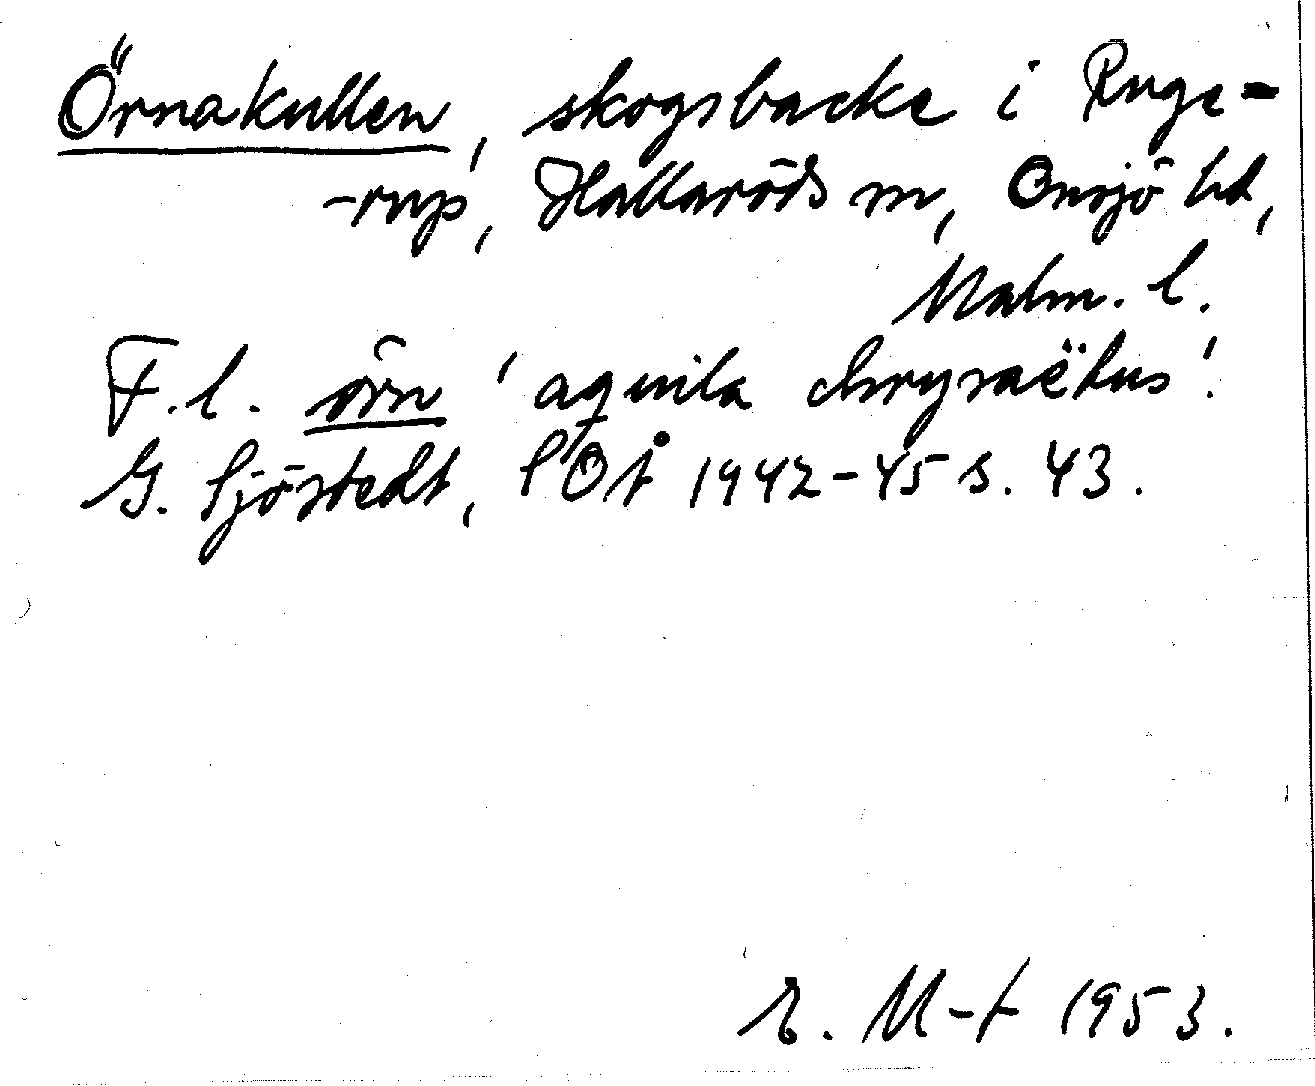 Örnakullen, skogsbacke i Ruge-
-rup, Hallaröds sn, Onsjö hd,
Malm. l.
F. l. örn 'aquila chrysaëtus'.
G. Sjöstedt, SOÅ 1942-45 s. 43.
E. M-t 1953.